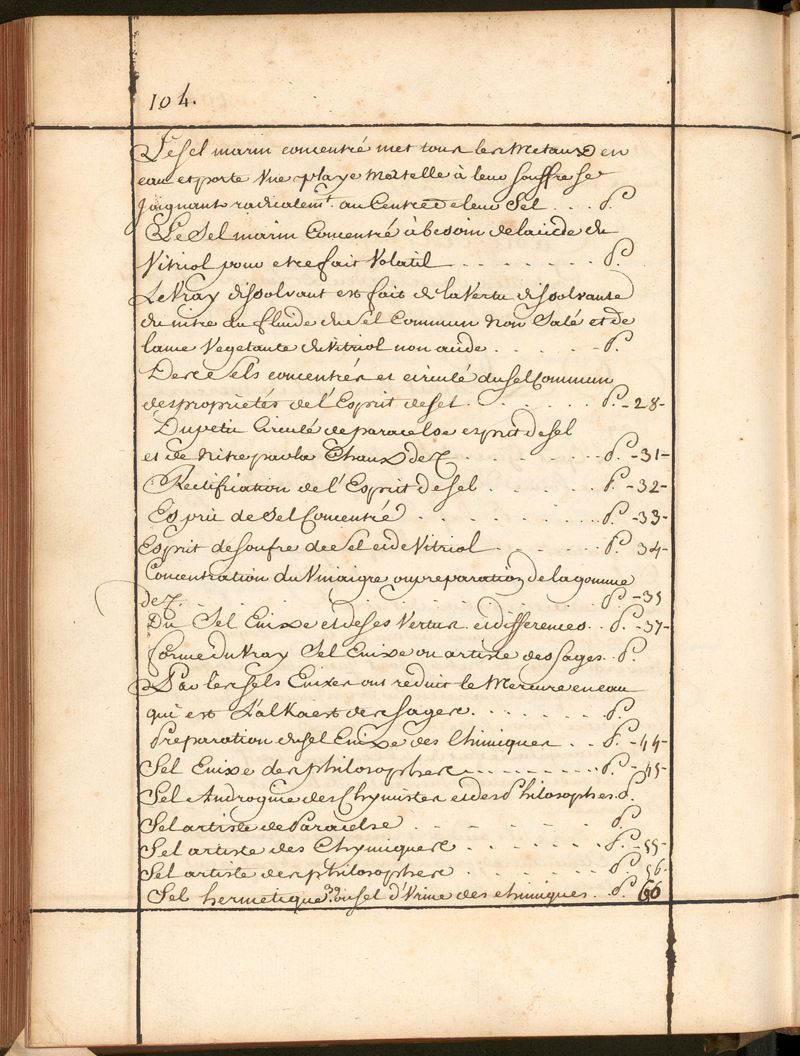 104.
Le sel marin concentré met tous les Metaux en
eau et porte Une playe Mortelle à leur souffre se
Joignant radicalemt. au Centre de leur Sel . . . P.
Le Sel marin Concentré à besoin de laide du
Vitriol pour etre fait Volatil . . . . . . . . P.
Le Vray dissolvant est fait de la Vertu dissolvante
du nitre du fluide du Sel Commun Non Salé et de
lame Vegetante du Vitriol non acide . . . . . P.
Des sels concentrés et circulé du sel Commun
des proprietés de l'Esprit de sel . . . . . . P. -28-
Du petit Circulé de paracelse esprit de sel
et de Nitre par la Chaux de . . . . . . P. -31-
Rectification de l'Esprit de sel . . . . . P. -32-
Esprit de Sel Concentré . . . . . . . . P. -33-
Esprit de soufre de Sel et de Vitriol . . . . . P. 34-
Concentration du Vinaigre ou preparation de la gomme
de . . . . . . . . . . . . . . . P. -35
Du Sel Enixe et de ses Vertus et differences . . P. -37-
Forme du Vray Sel Enixe ou artiste des Sages . P.
Par les sels Enixes ont reduit le Mercure en eau
qui est L'alKaest des sages . . . . . . . P.
Preparation du sel Enixe des Chimiques . . P. -44-
Sel Enixe des philosophes . . . . . . . . . P. -45-
Sel Androgine des Chymistes et des Philosophes P.
Sel artiste de Paracelse . - - - - . P
Sel artiste des Chymiques . . . . . . . P. -55-
Sel artiste des philosophes . . . . . . . P. 56-
Sel hermetique 39 ou sel d'Urine des chimiques . P. 66